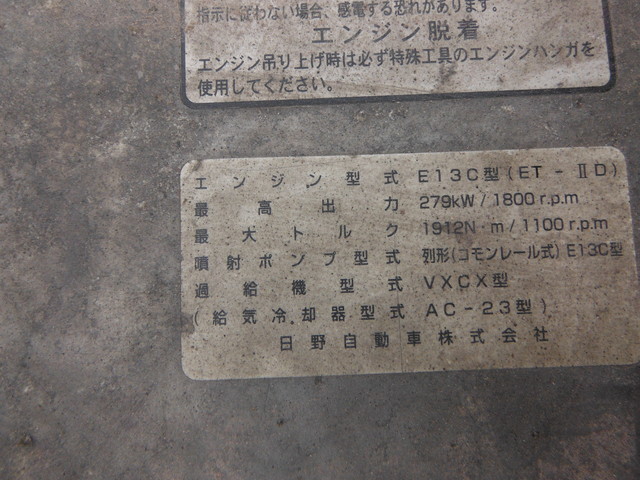 指示に従わない場合、感電する恐れがあります。
エンジン脱着
エンジン吊り上げ時は必ず特殊工具のエンジンハンガを
使用してください。
エンジン型式 E13C型(ET-ⅡD)
最高出力 279kW/1800r.p.m
最大トルク 1912N·m/1100r.p.m
噴射ポンプ型式 列形(コモンレール式)E13C型
過給機型式 VXCX型
(給気冷却器型式 AC-23型)
日野自動車株式会社